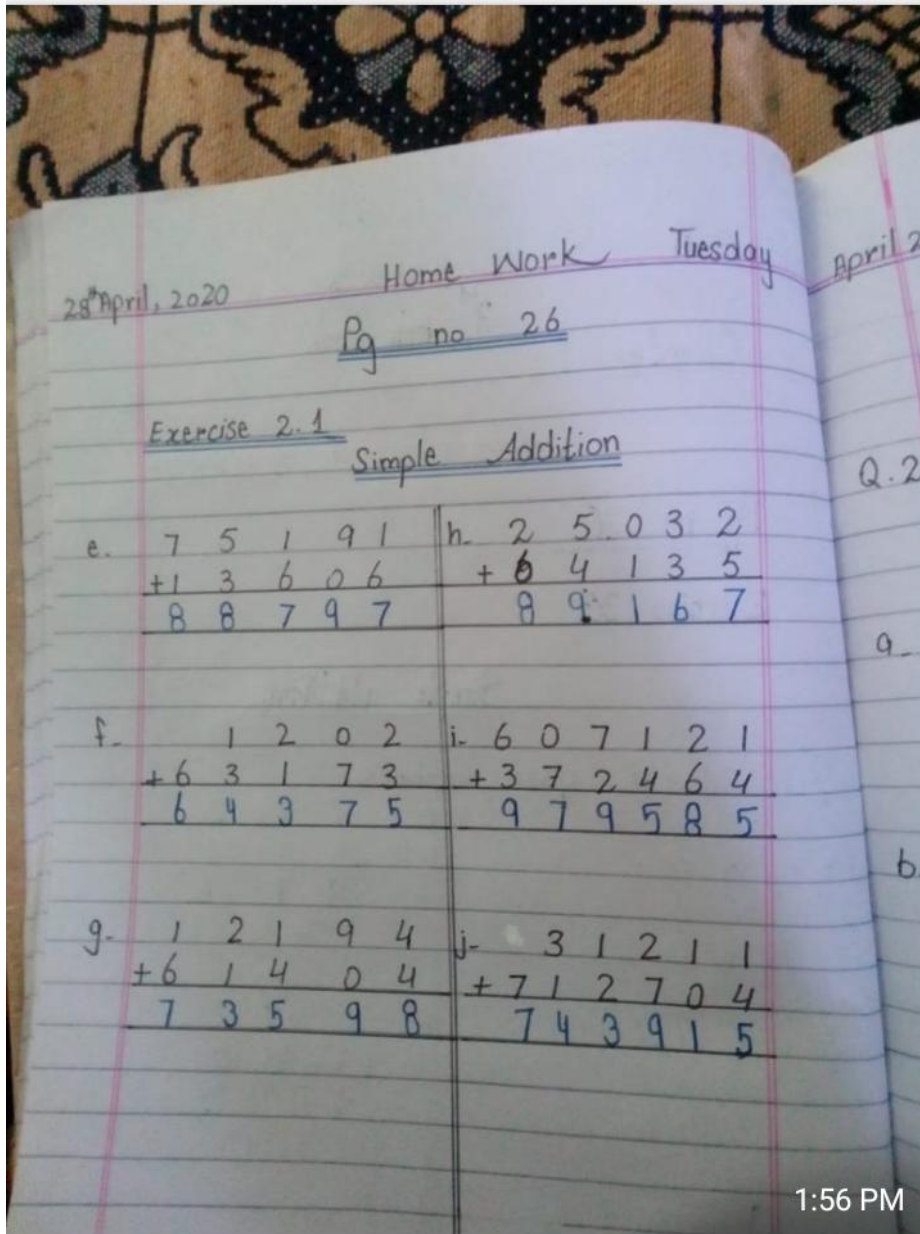 28th April, 2020 Home Work Tuesday
Pg no 26
Exercise 2.1
Simple Addition
e. 7 5 1 9 1
+1 3 6 0 6
8 8 7 9 7
f- 1 2 0 2
+6 3 1 7 3
6 4 3 7 5
g- 1 2 1 9 4
+6 1 4 0 4
7 3 5 9 8
h- 2 5 0 3 2
+ 6 4 1 3 5
8 9 1 6 7
i- 6 0 7 1 2 1
+3 7 2 4 6 4
9 7 9 5 8 5
j- 3 1 2 1 1
+7 1 2 7 0 4
7 4 3 9 1 5
April 2
Q.2
a-
b.
1:56 PM